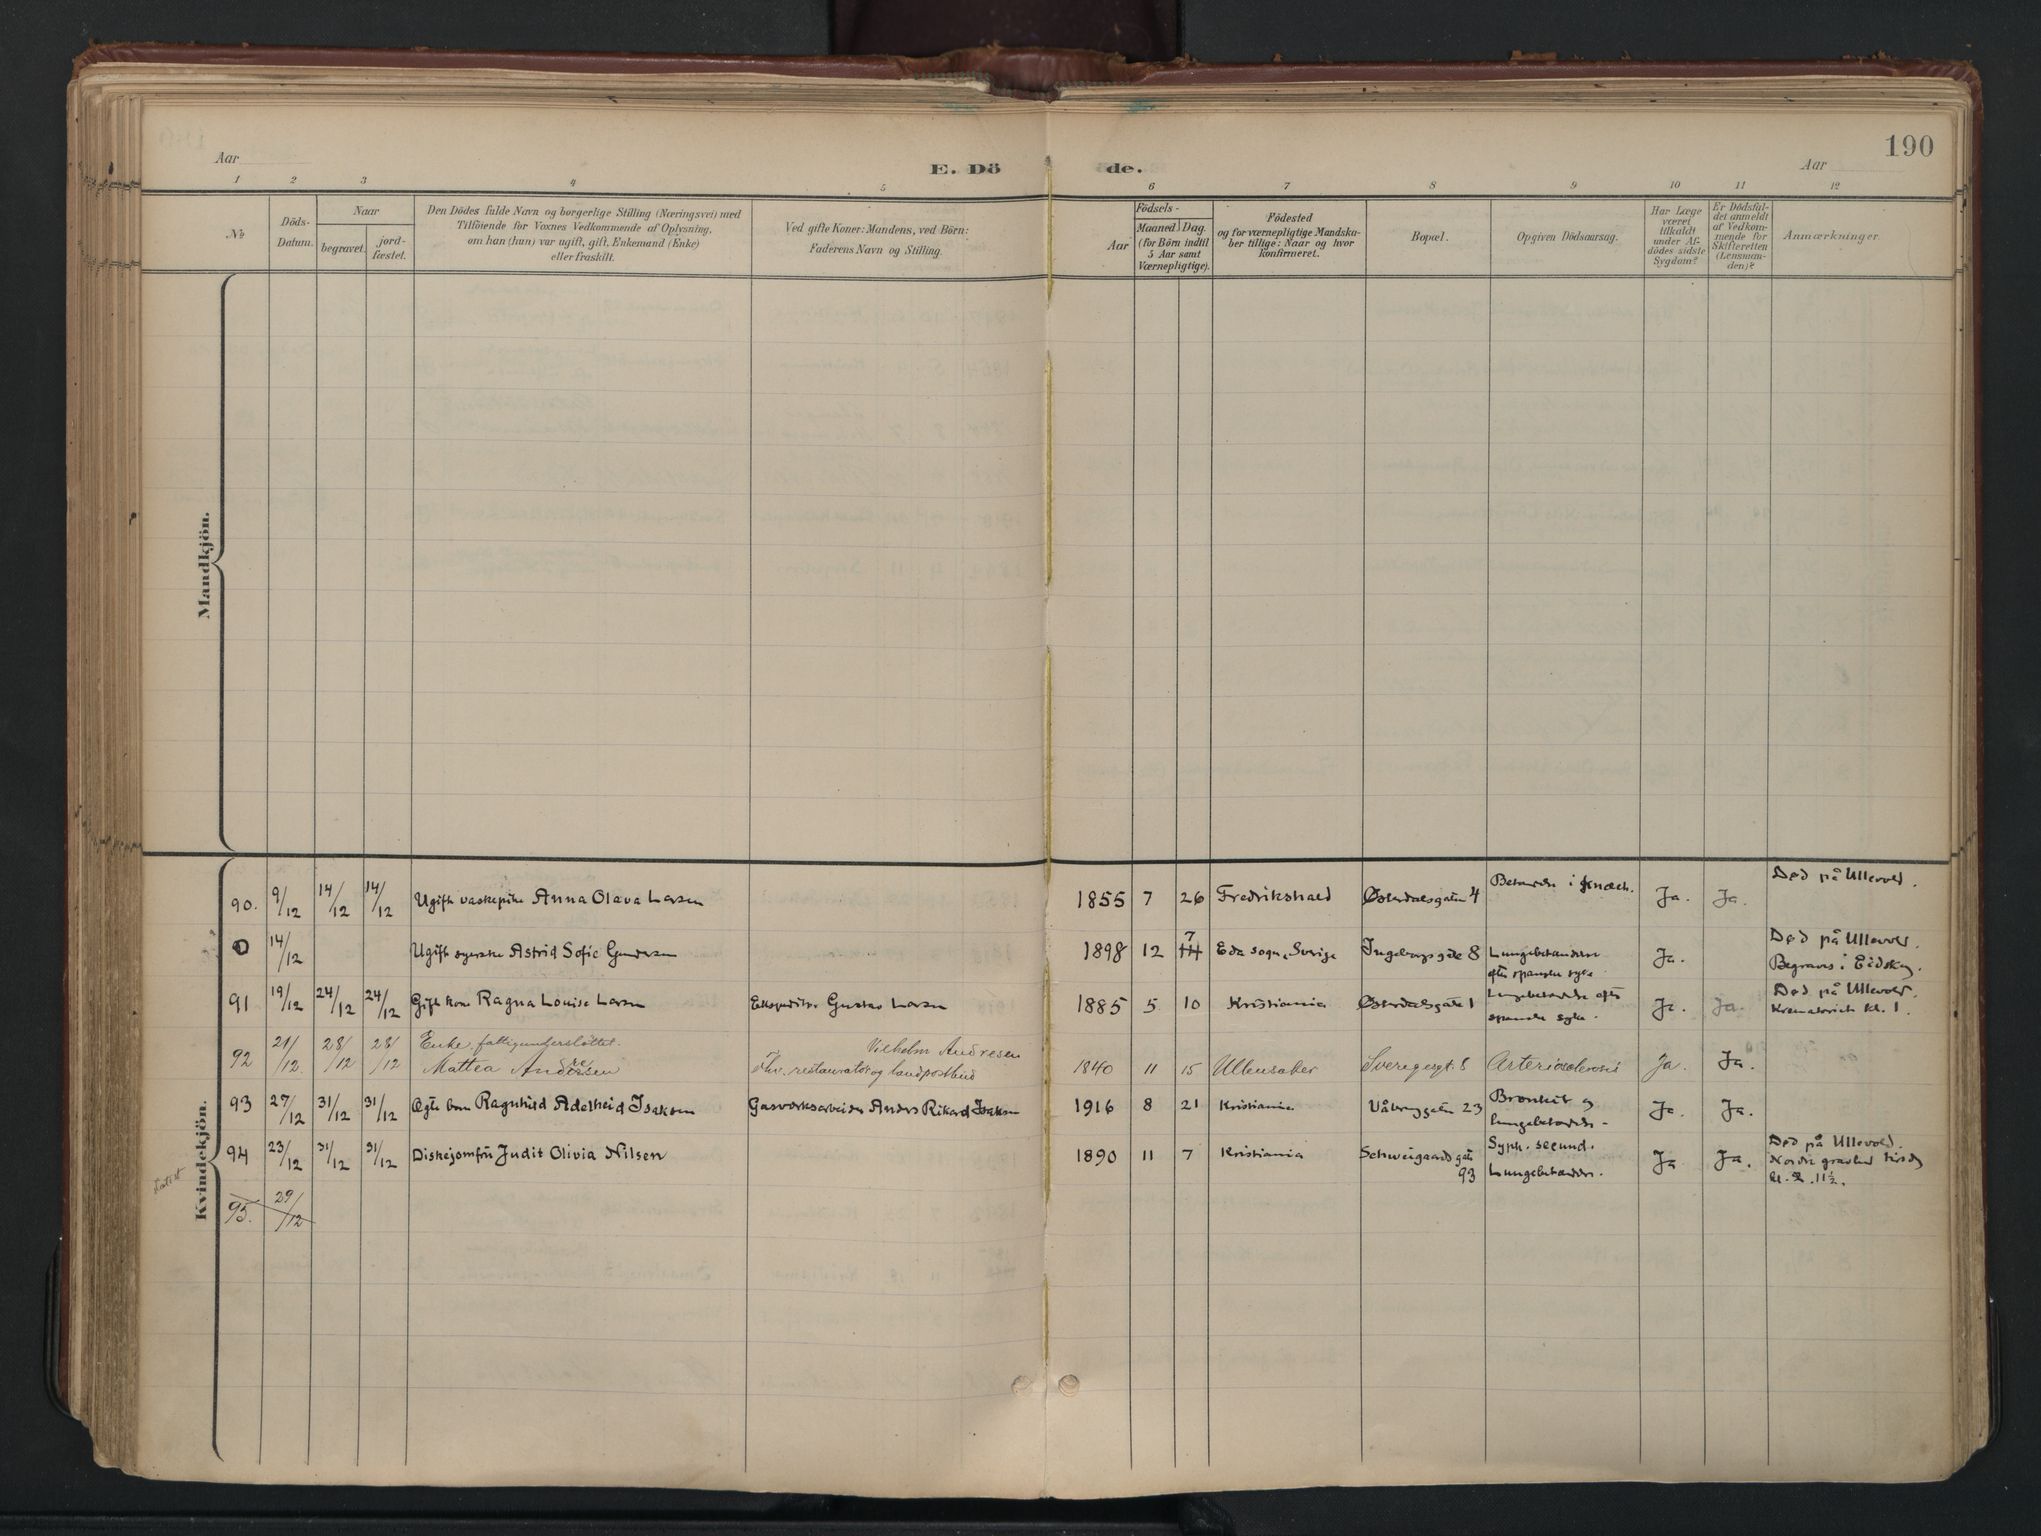 190
Aar
E. Dö
de.
Aar
1 2 3 4 5 6 7 8 9 10 11 12
№
Döds-
Datum.
Naar
begravet.
jord-
fæstet.
Den Dödes fulde Navn og borgerlige Stilling (Næringsvei) med
Tilföiende for Voxnes Vedkommende af Oplysning,
om han (hun) var ugift, gift, Enkemand (Enke)
eller fraskilt.
Ved gifte Koner: Mandens, ved Börn:
Faderens Navn og Stilling.
Födsels-
Aar
Maaned Dag.
(for Börn indtil
5 Aar samt
Værnepligtige).
Födested
og for værnepligtige Mandska-
ber tillige: Naar og hvor
konfirmeret.
Bopæl.
Opgiven Dödsaarsag.
Har Læge
været
tilkaldt
under Af-
dödes sidste
Sygdom?
Er Dödsfal-
det anmeldt
af Vedkom-
mende for
Skifteretten
(Lensman-
den)?
Anmærkninger.
Mandkjön.
Kvindekjön.
90. 9/12 14/12 14/12 Ugift vaskepike Anna Olava Larsen 1855 7 26 Fredrikshald Østerdalsgaten 4 Ja. Ja. Død på Ullevol.
0 14/12 Ugift syerske Astrid Sofie Gundersen 1898 12 7 Eda sogn, Sverige Ingeborgsgate 8 Lungebetændelse Ja. Død på Ullevol.
efter spanske syke. Begraves i Eidskog.
91 19/12 24/12 24/12 Gift kone Ragna Louise Larsen Ekspeditør Gustav Larsen 1885 5 10 Kristiania Østerdalsgate 1 Lungebetændelse efter Ja. Ja. Død på Ullevol.
spanske syke. Krematoriet kl. 1.
Enke, fattigunderstøttet. Vilhelm Andresen
92 21/12. 28/12 28/12 Mattea Andresen fhv. restauratør og landpostbud 1840 11 15 Ullensaker Sverigesgt. 8 Arteriosclerosis Ja. Ja.
93 27/12 31/12 31/12 Ægte barn Ragnhild Adelheid Isaksen Gasverksarbeider Anders Rikard Isaksen 1916 8 21 Kristiania Vålerenggaten 23 Bronkit og Ja. Ja.
lungebetændelse.
94 23/12 31/12 31/12 Diskejomfru Judit Olivia Nilsen 1890 11 7 Kristiania Schweigaards gate Syph. secund. Ja Ja. Død på Ullevol.
93 Lungebetændelse. Nordre gravlund tirsdag
kl. 11½.
95. 29/12